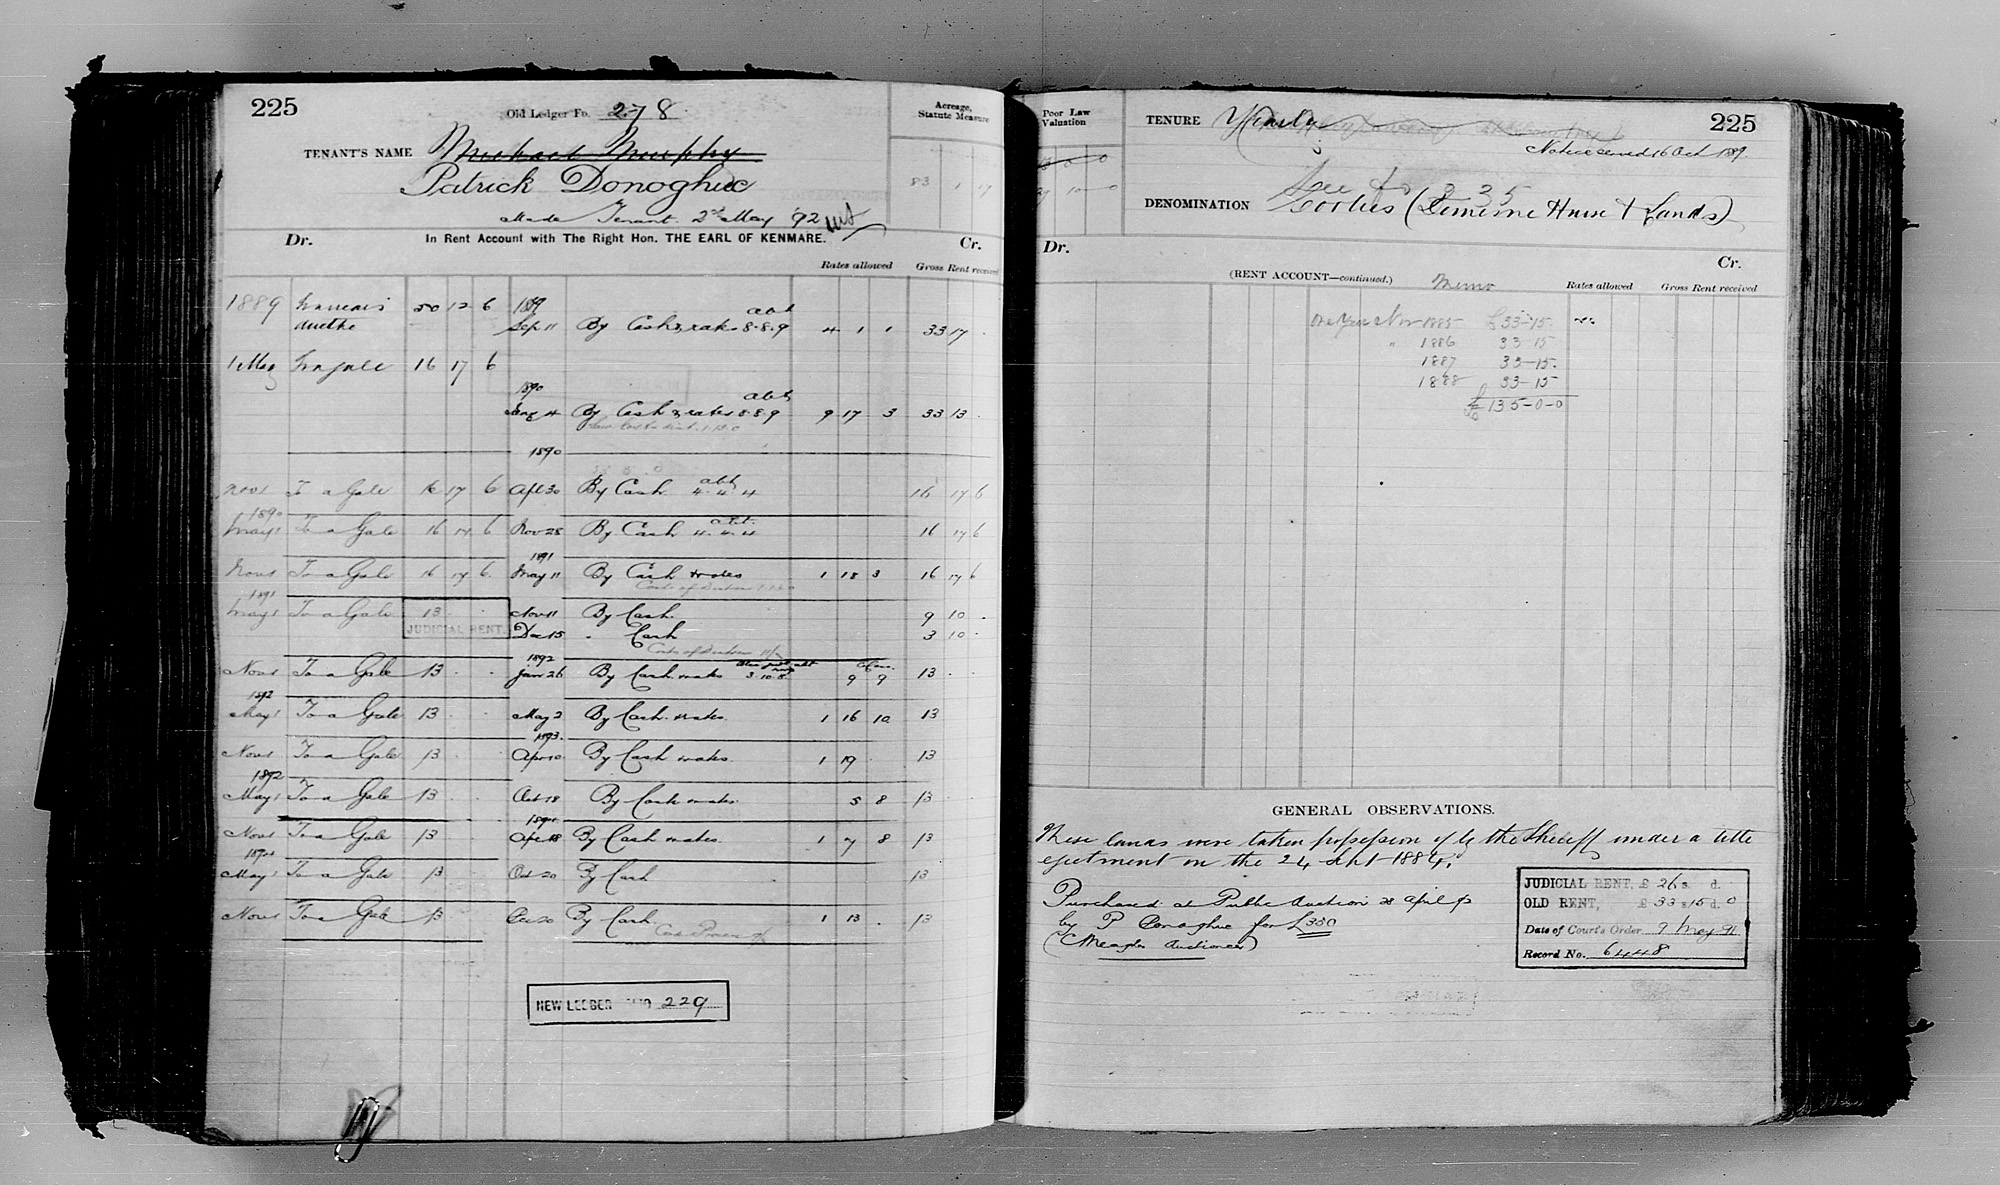 225
Old Ledger Fo. 278
Acreage,
Statute Measure
TENANT'S NAME Michael Murphy
Patrick Donoghue
83 1 17
Made Tenant 2nd May '92
Dr. In Rent Account with The Right Hon. THE EARL OF KENMARE. Cr.
Rates allowed Gross Rent received
1889 50 12 6 1889
Sep 11 By Cash & rates abt 8.8.9 4 1 1 33 17
1 May 16 17 6
1890
4 By Cash & rates abt 8.8.9 9 17 3 33 13
1890
Nov 1 To a Gale 16 17 6 Apl 30 By Cash abt 4.4.4 16 17 6
1890
May 1 To a Gale 16 17 6 Nov 28 By Cash abt 4.4.4 16 17 6
1891
Nov 1 To a Gale 16 17 6 May 11 By Cash & rates 1 18 3 16 17 6
1891
May 1 To a Gale 13 Nov 11 By Cash 9 10
JUDICIAL RENT. Dec 15 " Cash 3 10
1892
Nov 1 To a Gale 13 Jan 26 By Cash & rates 3.10.8 9 9 13
1892
May 1 To a Gale 13 May 2 By Cash & rates 1 16 10 13
1893
Nov 1 To a Gale 13 Apr 10 By Cash & rates 1 19 13
1892
May 1 To a Gale 13 Oct 18 By Cash & rates 5 8 13
Nov 1 To a Gale 13 Apr 18 By Cash & rates 1 7 8 13
May 1 To a Gale 13 Oct 20 By Cash 13
Nov 1 To a Gale 13 Dec 20 By Cash 1 13 13
NEW LEDGER 229
Poor Law
Valuation
TENURE Yearly
225
Notice served 16 Oct 1889.
See fo 335
DENOMINATION (Demesne House & Lands)
Dr. Cr.
(RENT ACCOUNT—continued.) Memo Rates allowed Gross Rent received
One Year Nov 1885 £33-15
" 1886 33-15
1887 33-15
1888 33-15
£135-0-0
GENERAL OBSERVATIONS.
These lands were taken possession of by the Sheriff under a title
ejectment on the 24 Sept 1884.
Purchased at Public Auction 28 April 92
by P Donoghue for £330
(Meagher Auctioneer)
JUDICIAL RENT, £ 26 s. d.
OLD RENT, £ 33 s. 15 d. 0
Date of Court's Order 9 May 91
Record No. 6448